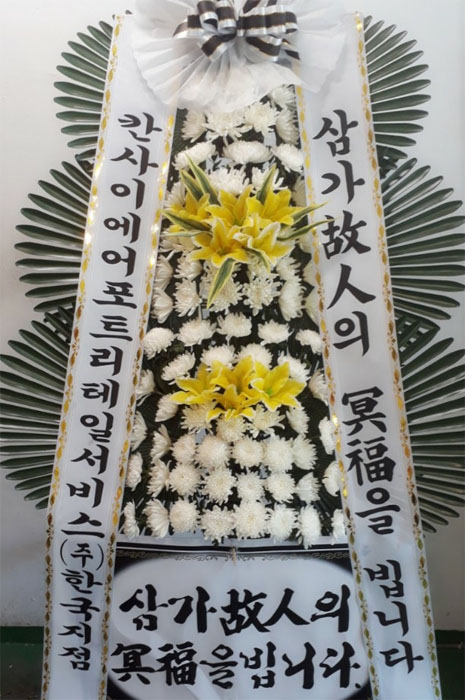 삼가故人의 冥福을 빕니다
칸사이에어포트리테일서비스(주)한국지점
삼가故人의
冥福을빕니다.